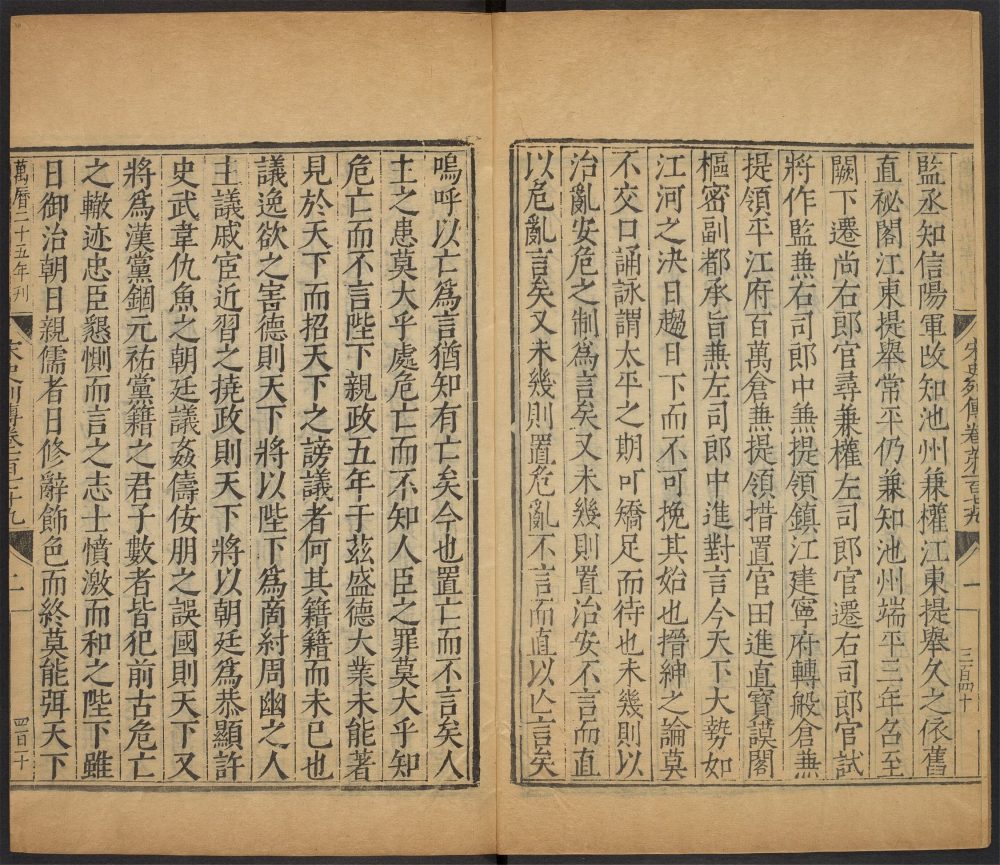 宋史列傳卷第一百七十九
一
三百四十
監丞知信陽軍改知池州兼權江東提舉久之依舊
直祕閣江東提舉常平仍兼知池州端平三年召至
闕下遷尚右郎官尋兼權左司郎官遷右司郎官試
將作監兼右司郎中兼提領鎮江建寧府轉般倉兼
提領平江府百萬倉兼提領措置官田進直寶謨閣
樞密副都承旨兼左司郎中進對言今天下大勢如
江河之決日趨日下而不可挽其始也搢紳之論莫
不交口誦詠謂太平之期可矯足而待也未幾則以
治亂安危之制為言矣又未幾則置治安不言而直
以危亂言矣又未幾則置危亂不言而直以亡言矣
嗚呼以亡為言猶知有亡矣今也置亡而不言矣人
主之患莫大乎處危亡而不知人臣之罪莫大乎知
危亡而不言陛下親政五年于茲盛德大業未能著
見於天下而招天下之謗議者何其籍籍而未已也
議逸欲之害德則天下將以陛下為商紂周幽之人
主議戚宦近習之撓政則天下將以朝廷為恭顯許
史武韋仇魚之朝廷議姦儔佞朋之誤國則天下又
將為漢黨錮元祐黨籍之君子數者皆犯前古危亡
之轍迹忠臣懇惻而言之志士憤激而和之陛下雖
日御治朝日親儒者日修辭飾色而終莫能弭天下
萬曆二十五年刊
宋史列傳卷一百七十九
二
四百十